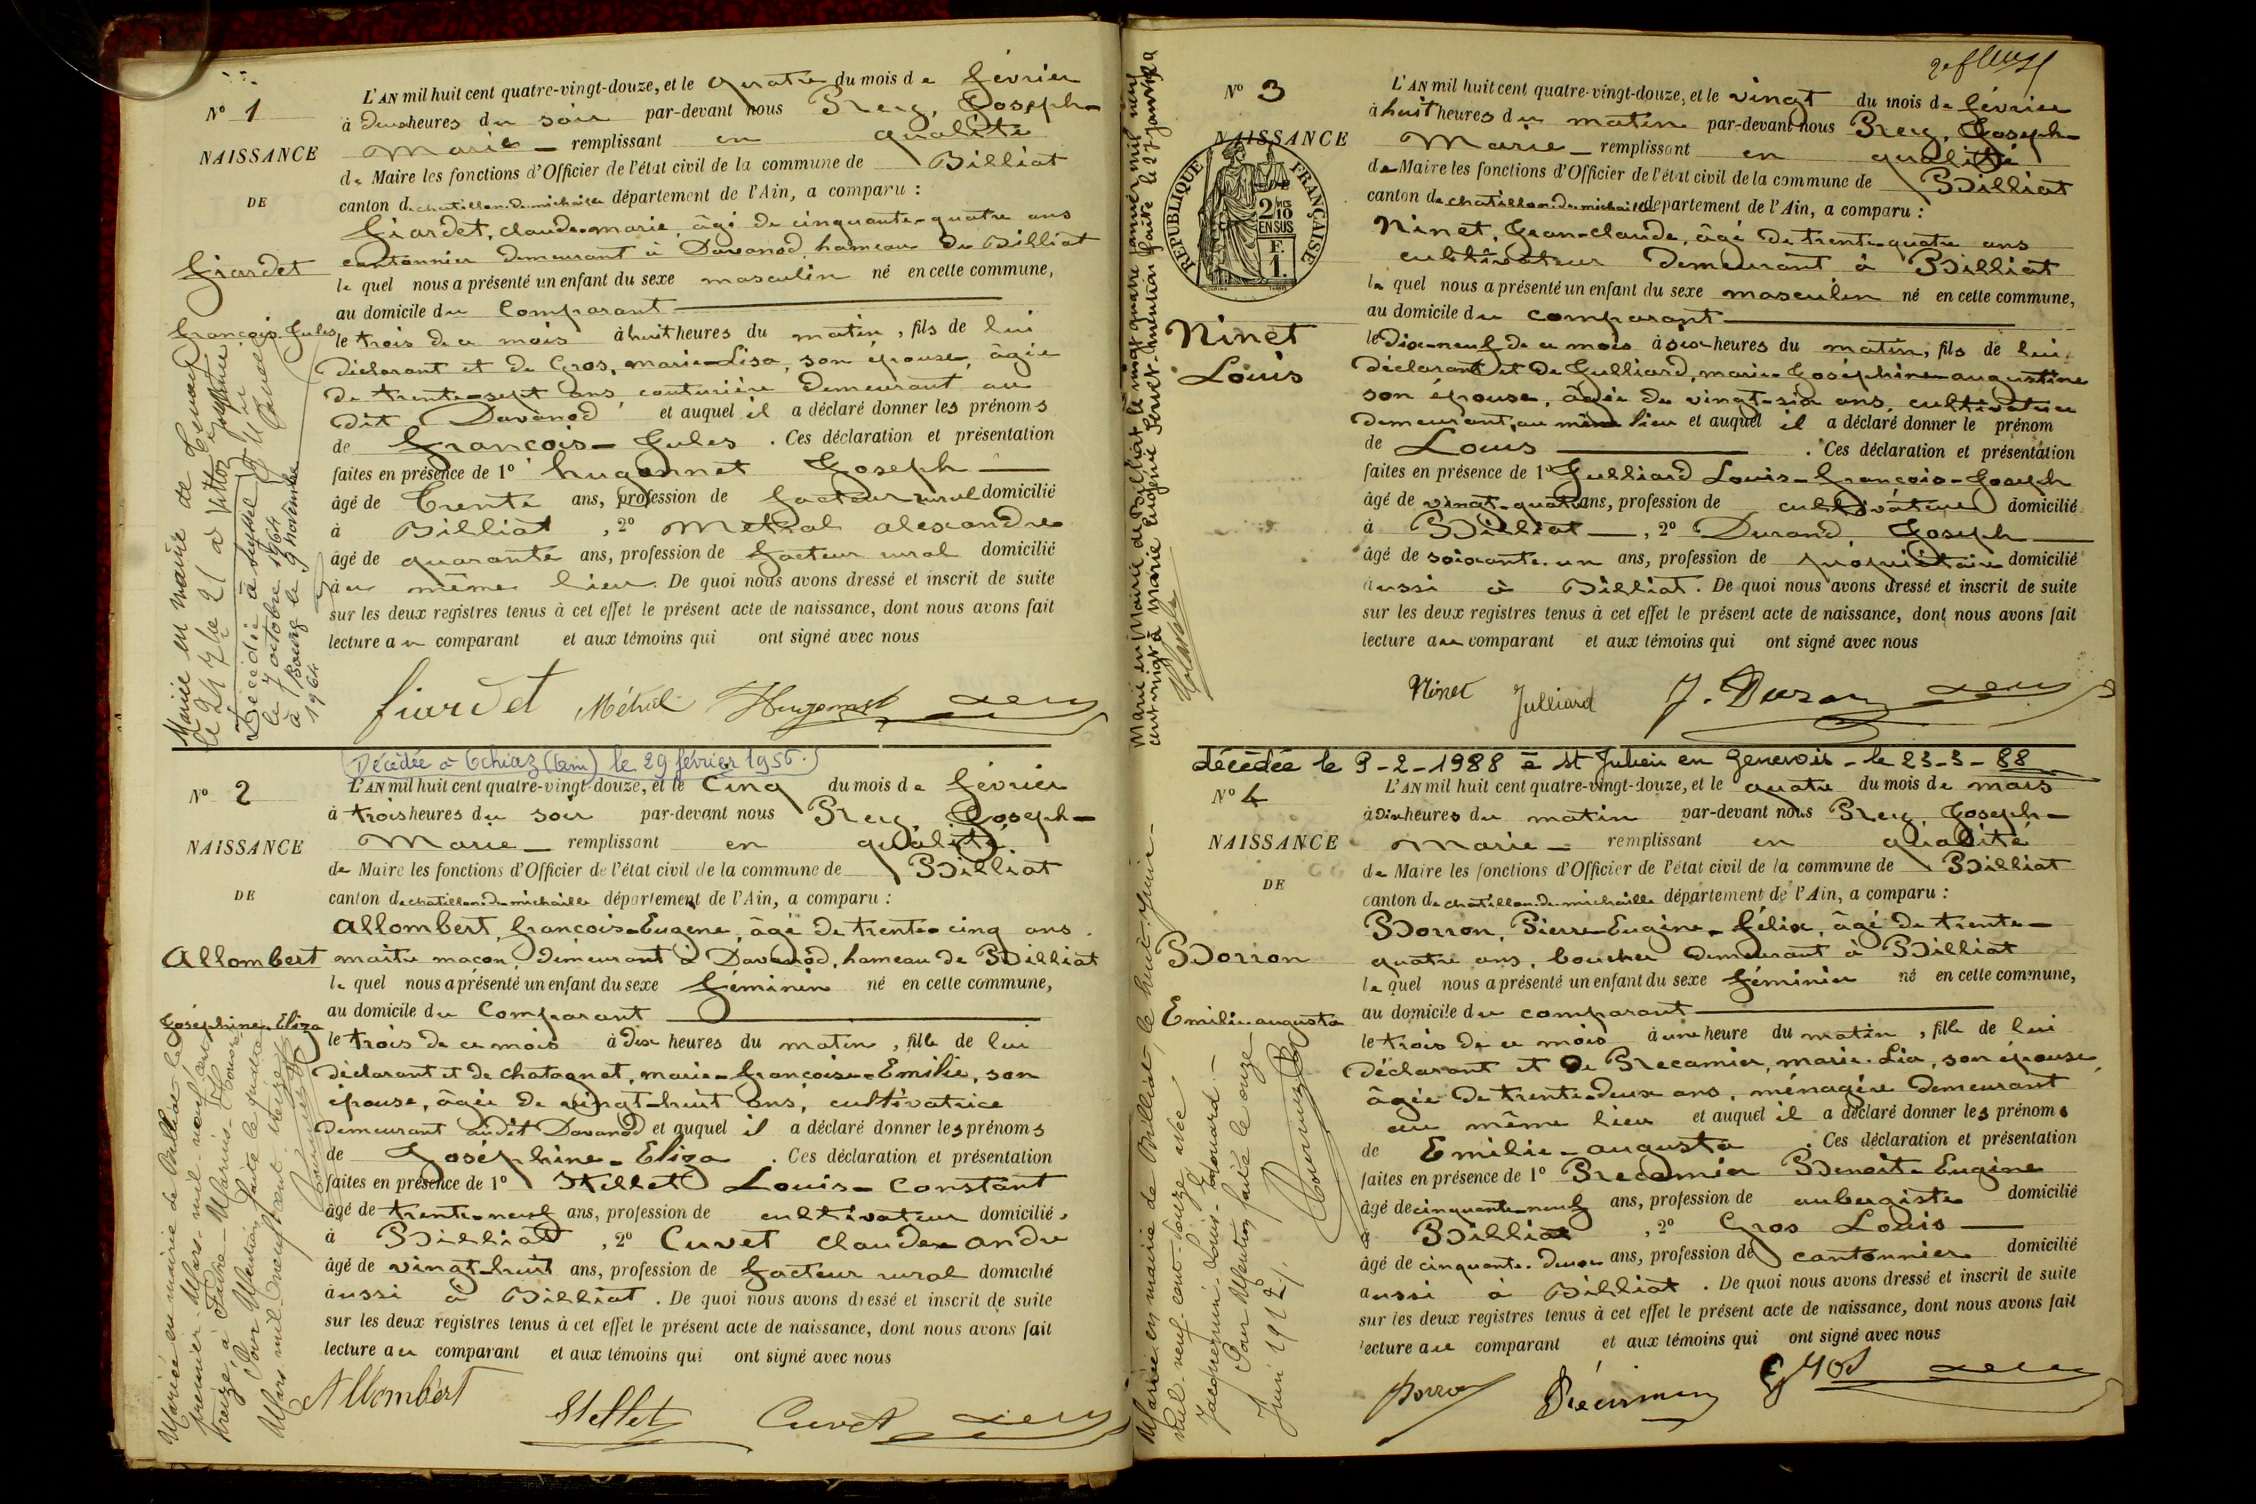 N° 1
NAISSANCE
DE
Giardet
François-Jules
L'AN mil huit cent quatre-vingt-douze, et le quatre du mois de février
à deux heures du soir par-devant nous Joseph-
Marie - remplissant en qualité
de Maire les fonctions d'Officier de l'état civil de la commune de Billiat
canton de chatillon-de-michaille département de l'Ain, a comparu :
Giardet, claude-marie, âgé de cinquante-quatre ans
cantonnier demeurant à Davanod, hameau de Billiat
le quel nous a présenté un enfant du sexe masculin né en cette commune,
au domicile du Comparant
le trois de ce mois à huit heures du matin, fils de lui
déclarant et de Gros, marie-Lisa, son épouse, âgée
de trente-sept ans, couturière demeurant au
dit Davanod et auquel il a déclaré donner les prénoms
de François-Jules. Ces déclaration et présentation
faites en présence de 1° hugonnet Joseph
âgé de Trente ans, profession de facteur rural domicilié
à Billiat, 2° Métral alexandre
âgé de quarante ans, profession de facteur rural domicilié
au même lieu. De quoi nous avons dressé et inscrit de suite
sur les deux registres tenus à cet effet le présent acte de naissance, dont nous avons fait
lecture au comparant et aux témoins qui ont signé avec nous
Giardet Métral Hugonnet
Marié en mairie de
le 24 7bre 21 à
Décédé à Seyssel
le 7 octobre 1964
à Bourg le 9 novembre
1964
Décédée à Ochiaz (Ain) le 29 février 1956.
N° 2
NAISSANCE
DE
Allombert
Joséphine-Eliza
L'AN mil huit cent quatre-vingt-douze, et le Cinq du mois de février
à trois heures du soir par-devant nous Joseph-
Marie - remplissant en qualité
de Maire les fonctions d'Officier de l'état civil de la commune de Billiat
canton de chatillon-de-michaille département de l'Ain, a comparu :
Allombert, françois-Eugene, âgé de trente-cinq ans.
maître maçon, demeurant à Davanod, hameau de Billiat
le quel nous a présenté un enfant du sexe féminin né en cette commune,
au domicile du Comparant
le trois de ce mois à dix heures du matin, fille de lui
déclarant et de chatagnat, marie-françoise-Emilie, son
épouse, âgée de vingt-huit ans, cultivatrice
demeurant audit Davanod et auquel il a déclaré donner les prénoms
de Joséphine-Eliza. Ces déclaration et présentation
faites en présence de 1° Stellet Louis-Constant
âgé de trente-neuf ans, profession de cultivateur domicilié
à Billiat, 2° Cuvet claude andré
âgé de vingt-huit ans, profession de facteur rural domicilié
aussi à Billiat. De quoi nous avons dressé et inscrit de suite
sur les deux registres tenus à cet effet le présent acte de naissance, dont nous avons fait
lecture au comparant et aux témoins qui ont signé avec nous
Allombert Stellet Cuvet
Mariée en mairie de Billiat le
premier Mars mil neuf cent
treize, à Favre - Marius - Honoré
Pour Mention faite le quatre
Mars mil neuf cent treize
N° 3
NAISSANCE
RÉPUBLIQUE FRANÇAISE
2/10 EN SUS
F. 1.
Ninet
Louis
L'AN mil huit cent quatre-vingt-douze, et le vingt du mois de février
à huit heures du matin par-devant nous Joseph-
Marie - remplissant en qualité
de Maire les fonctions d'Officier de l'état civil de la commune de Billiat
canton de chatillon-de-michaille département de l'Ain, a comparu :
Ninet, Jean-claude, âgé de trente-quatre ans
cultivateur demeurant à Billiat
le quel nous a présenté un enfant du sexe masculin né en cette commune,
au domicile du comparant
le Dix-neuf de ce mois à six heures du matin, fils de lui
déclarant et de Julliard, marie-Joséphine-augustine
son épouse, âgée de vingt-six ans, cultivatrice
demeurant au même lieu et auquel il a déclaré donner le prénom
de Louis. Ces déclaration et présentation
faites en présence de 1° Julliard Louis-françois-Joseph
âgé de vingt-quatre ans, profession de cultivateur domicilié
à Billiat, 2° Durand, Joseph
âgé de soixante-un ans, profession de propriétaire domicilié
aussi à Billiat. De quoi nous avons dressé et inscrit de suite
sur les deux registres tenus à cet effet le présent acte de naissance, dont nous avons fait
lecture au comparant et aux témoins qui ont signé avec nous
Ninet Julliard J. Duran
Marié en mairie de Billiat le vingt quatre janvier mil neuf
cent vingt à Marie Eugénie Serret. mention faite le 27 janvier
décédée le 9-2-1988 à St Julien en Genevois - le 23-3-88
N° 4
NAISSANCE
DE
Borron
Emilie augusta
L'AN mil huit cent quatre-vingt-douze, et le quatre du mois de mars
à Dix heures du matin par-devant nous Joseph-
Marie - remplissant en qualité
de Maire les fonctions d'Officier de l'état civil de la commune de Billiat
canton de chatillon-de-michaille département de l'Ain, a comparu :
Borron, Pierre-Eugène-félix, âgé de trente-
quatre ans, boucher demeurant à Billiat
le quel nous a présenté un enfant du sexe féminin né en cette commune,
au domicile du comparant
le trois de ce mois à une heure du matin, fille de lui
déclarant et de Brecamier, marie-Lia, son épouse
âgée de trente-deux ans, ménagère demeurant
au même lieu et auquel il a déclaré donner les prénoms
de Emilie-augusta. Ces déclaration et présentation
faites en présence de 1° Benoît-Eugène
âgé de cinquante-neuf ans, profession de aubergiste domicilié
à Billiat, 2° Gros Louis
âgé de cinquante-deux ans, profession de cantonnier domicilié
aussi à Billiat. De quoi nous avons dressé et inscrit de suite
sur les deux registres tenus à cet effet le présent acte de naissance, dont nous avons fait
lecture au comparant et aux témoins qui ont signé avec nous
Borron Gros
Mariée en mairie de Billiat, le huit Juin
mil-neuf-cent-douze avec
Jacquemin-Louis-Edouard.-
Pour Mention faite le onze
Juin 1912